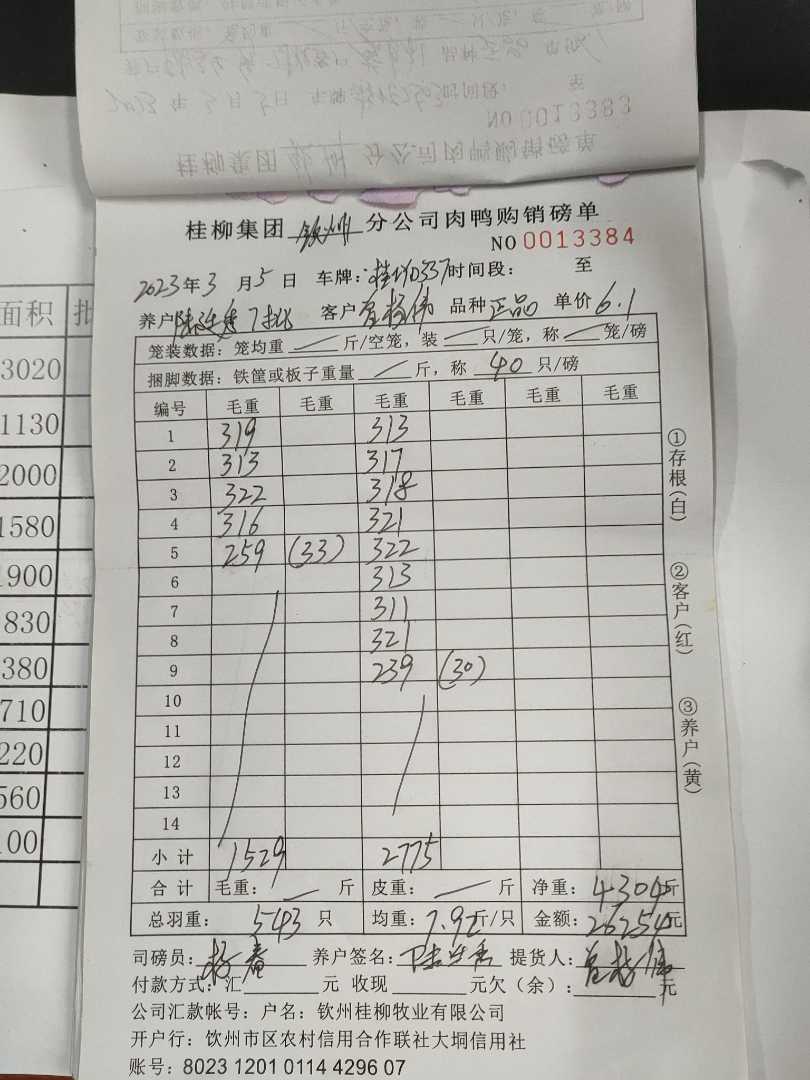 桂柳集团 钦州 分公司肉鸭购销磅单
NO 0013384
2023年3月5日 车牌：桂N0337 时间段： 至
养户 7批 客户 品种 正品 单价 6.1
笼装数据：笼均重 斤/空笼，装 只/笼，称 笼/磅
捆脚数据：铁筐或板子重量 斤，称 40 只/磅
编号 毛重 毛重 毛重 毛重 毛重 毛重
1 319 313
2 313 317
3 322 318
4 316 321
5 259 (33) 322
6 313
7 311
8 321
9 239 (30)
10
11
12
13
14
小计 1529 2775
合计 毛重： 斤 皮重： 斤 净重：4304斤
总羽重：543只 均重：7.92斤/只 金额：26254元
司磅员：杨春 养户签名： 提货人：
付款方式：汇 元 收现 元欠（余）： 元
公司汇款帐号：户名：钦州桂柳牧业有限公司
开户行：饮州市区农村信用合作联社大垌信用社
账号：8023 1201 0114 4296 07
①存根(白)
②客户(红)
③养户(黄)
面积 批
3020
1130
2000
1580
1900
830
380
710
220
560
100
NO 0013383
桂柳集团 钦州 分公司肉鸭购销磅单